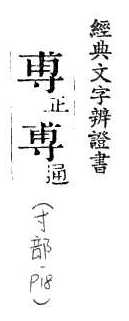 經典文字辨證書
尃正尃通
(寸部·P18)